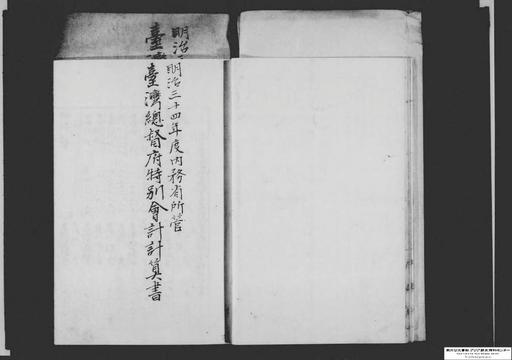 明治
明治三十四年度内務省所管
臺灣
臺灣總督府特別會計計算書